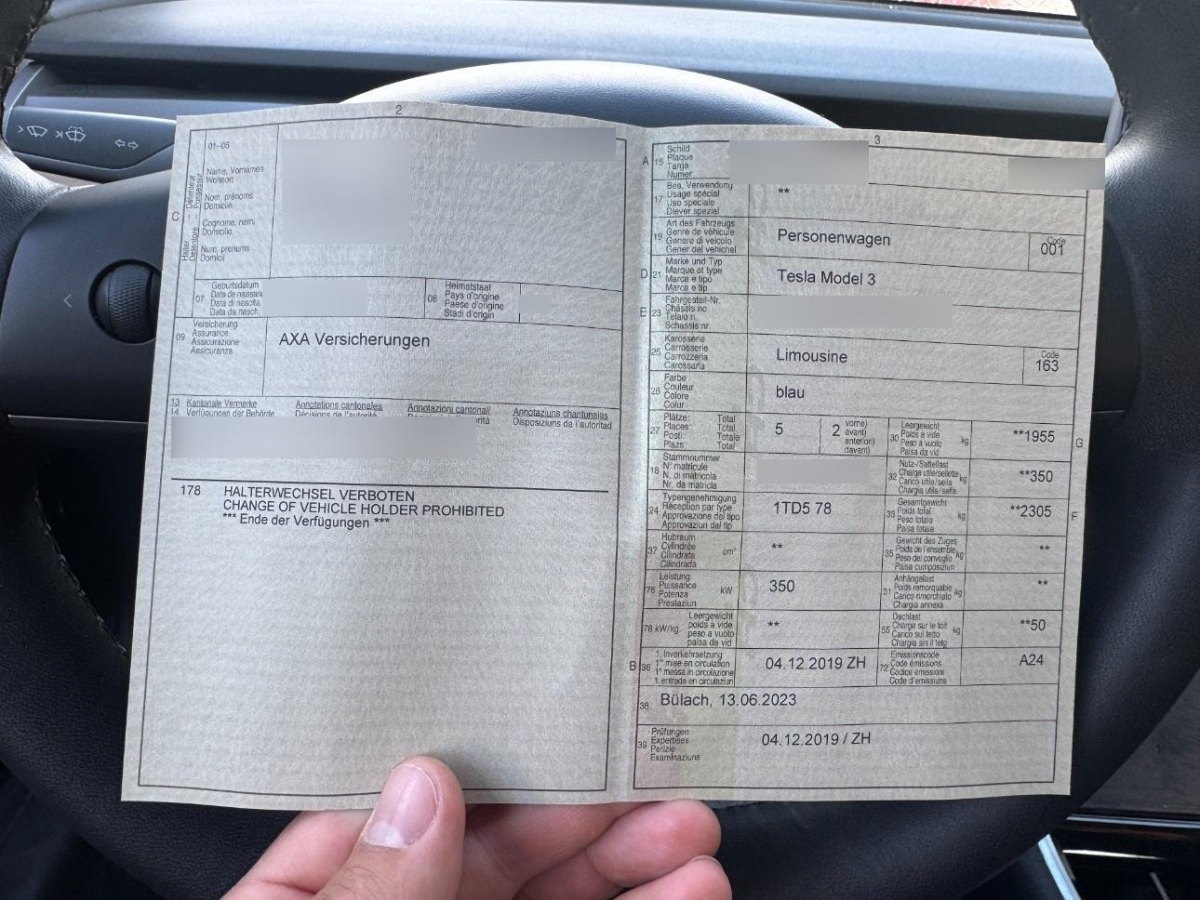 2
01-05
C
Halter
Détenteur
Detentore
Possessur
Name, Vornamen
Wohnort
Nom, prénoms
Domicile
Cognome, nomi
Domicilio
Num, prenums
Domicil
07
Geburtsdatum
Date de naissance
Data di nascita
Data da nasch.
08
Heimatstaat
Pays d'origine
Paese d'origine
Stadi d'origin
09
Versicherung
Assurance
Assicurazione
Assicuranza
AXA Versicherungen
13 Kantonale Vermerke
14 Verfügungen der Behörde
Annotations cantonales
Décisions de l'autorité
Annotazioni cantonali
Annotaziuns chantunalas
Disposiziuns da l'autoritad
178 HALTERWECHSEL VERBOTEN
CHANGE OF VEHICLE HOLDER PROHIBITED
*** Ende der Verfügungen ***
3
A 15
Schild
Plaque
Targa
Numer
17
Bes. Verwendung
Usage spécial
Uso speciale
Diever spezial
**
19
Art des Fahrzeugs
Genre de véhicule
Genere di veicolo
Gener dal vehichel
Personenwagen
Code
001
D 21
Marke und Typ
Marque et type
Marca e tipo
Marca e tip
Tesla Model 3
E 23
Fahrgestell-Nr.
Châssis no
Telaio n.
Schassis nr.
25
Karosserie
Carrosserie
Carrozzeria
Carossaria
Limousine
Code
163
26
Farbe
Couleur
Colore
Colur
blau
27
Plätze: Total
Places: Total
Posti: Totale
Plazs: Total
5
2
vorne)
avant)
anteriori)
davant)
30
Leergewicht
Poids à vide
Peso a vuoto
Paisa da vid
kg
**1955
G
18
Stammnummer
N° matricule
N. di matricola
Nr. da matricla
32
Nutz-/Sattellast
Charge utile/sellette
Carico utile/sella
Chargia utila/sella
kg
**350
24
Typengenehmigung
Réception par type
Approvazione del tipo
Approvaziun dal tip
1TD5 78
33
Gesamtgewicht
Poids total
Peso totale
Paisa totala
kg
**2305
F
37
Hubraum
Cylindrée
Cilindrata
Cilindrada
cm³
**
35
Gewicht des Zuges
Poids de l'ensemble
Peso del convoglio
Paisa cumposiziun
kg
**
76
Leistung
Puissance
Potenza
Prestaziun
kW
350
31
Anhängelast
Poids remorquable
Carico rimorchiato
Chargia annexa
kg
**
78 kW/kg
Leergewicht
poids à vide
peso a vuoto
paisa da vid
**
55
Dachlast
Charge sur le toit
Carico sul tetto
Chargia sin il tetg
kg
**50
B 36
1. Inverkehrsetzung
1re mise en circulation
1a messa in circolazione
1. entrada en circulaziun
04.12.2019 ZH
72
Emissionscode
Code émissions
Codice emissioni
Code d'emissiuns
A24
38
Bülach, 13.06.2023
39
Prüfungen
Expertises
Perizie
Examinaziuns
04.12.2019 / ZH